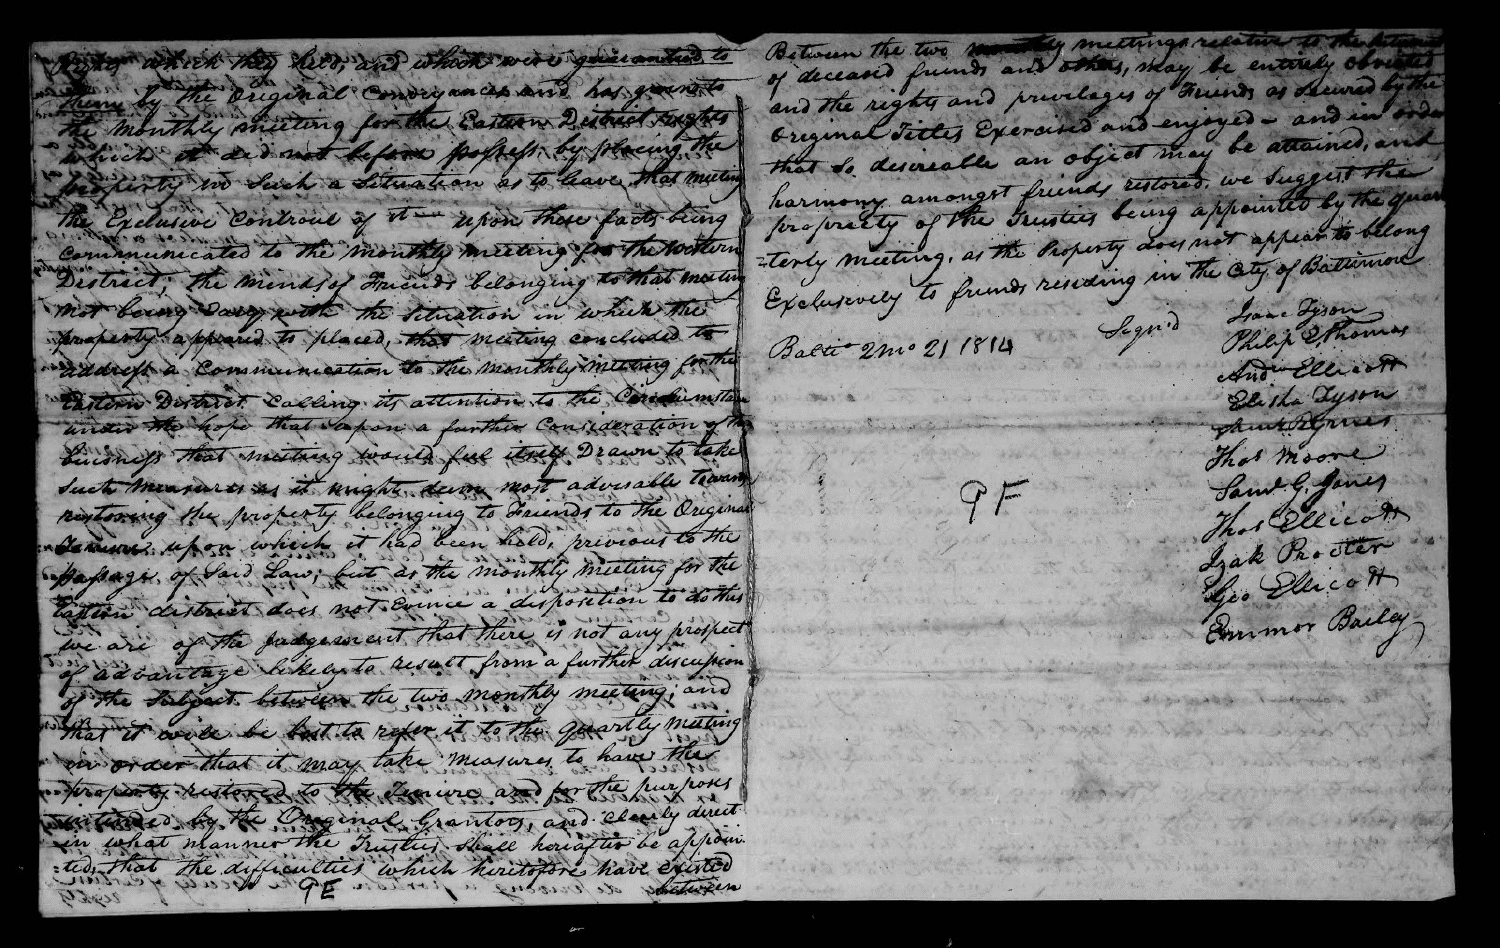 Rights which they held, and which were guaranteed to
them by the Original Conveyances and has given to
the Monthly meeting for the Eastern District rights
which it did not before possess by placing the
property in Such a Situation as to leave that meeting
the Exclusive Controul of it — upon these facts being
Communicated to the Monthly meeting for the Western
District, the minds of Friends belonging to that meeting
not being Easy with the Situation in which the
property appeared to placed, that meeting concluded to
address a Communication to the Monthly meeting for the
Eastern District Calling its attention to the Circumstan
under the hope that upon a further Consideration of the
buisness that meeting would feel itself Drawn to take
Such Measures as it might deem most adviseable towards
restoring the property belonging to Friends to the Original
Tenure upon which it had been held, previous to the
Passage of Said Law; but as the Monthly Meeting for the
Eastern district does not Evince a disposition to do this
we are of the Judgement that there is not any prospect
of advantage likely to result from a further discussion
of the Subject between the two Monthly meeting; and
that it will be best to refer it to the Quartly Meeting
in order that it may take Measures to have the
property restored to the Tenure and for the purposes
intended by the Original Grantors, and clearly direct
in what manner the Trusties Shall hereafter be appoin
ted, that the difficulties which heretofore have existed
between
PE
Between the two monthly meetings relative to the
of deceased friends and others, may be entirely obviated
and the rights and privilages of Friends as Secured by the
Original Titles Exercised and enjoyed — and in order
that So desireable an object may be attained, and
harmony amongst friends restored, we Suggest the
propriety of the Trusties being appointed by the quar
=terly Meeting, as the Property does not appear to belong
Exclusively to friends residing in the City of Baltimore
Sign'd
Balto 2 mo 21 1814
Isaac Tyson
Philip E Thomas
Andw Ellicott
Elisha Tyson
Thos Moore
Saml G. Jones
Thos Ellicott
Izak Procter
Geo Ellicott
Emmor Bailey
PF